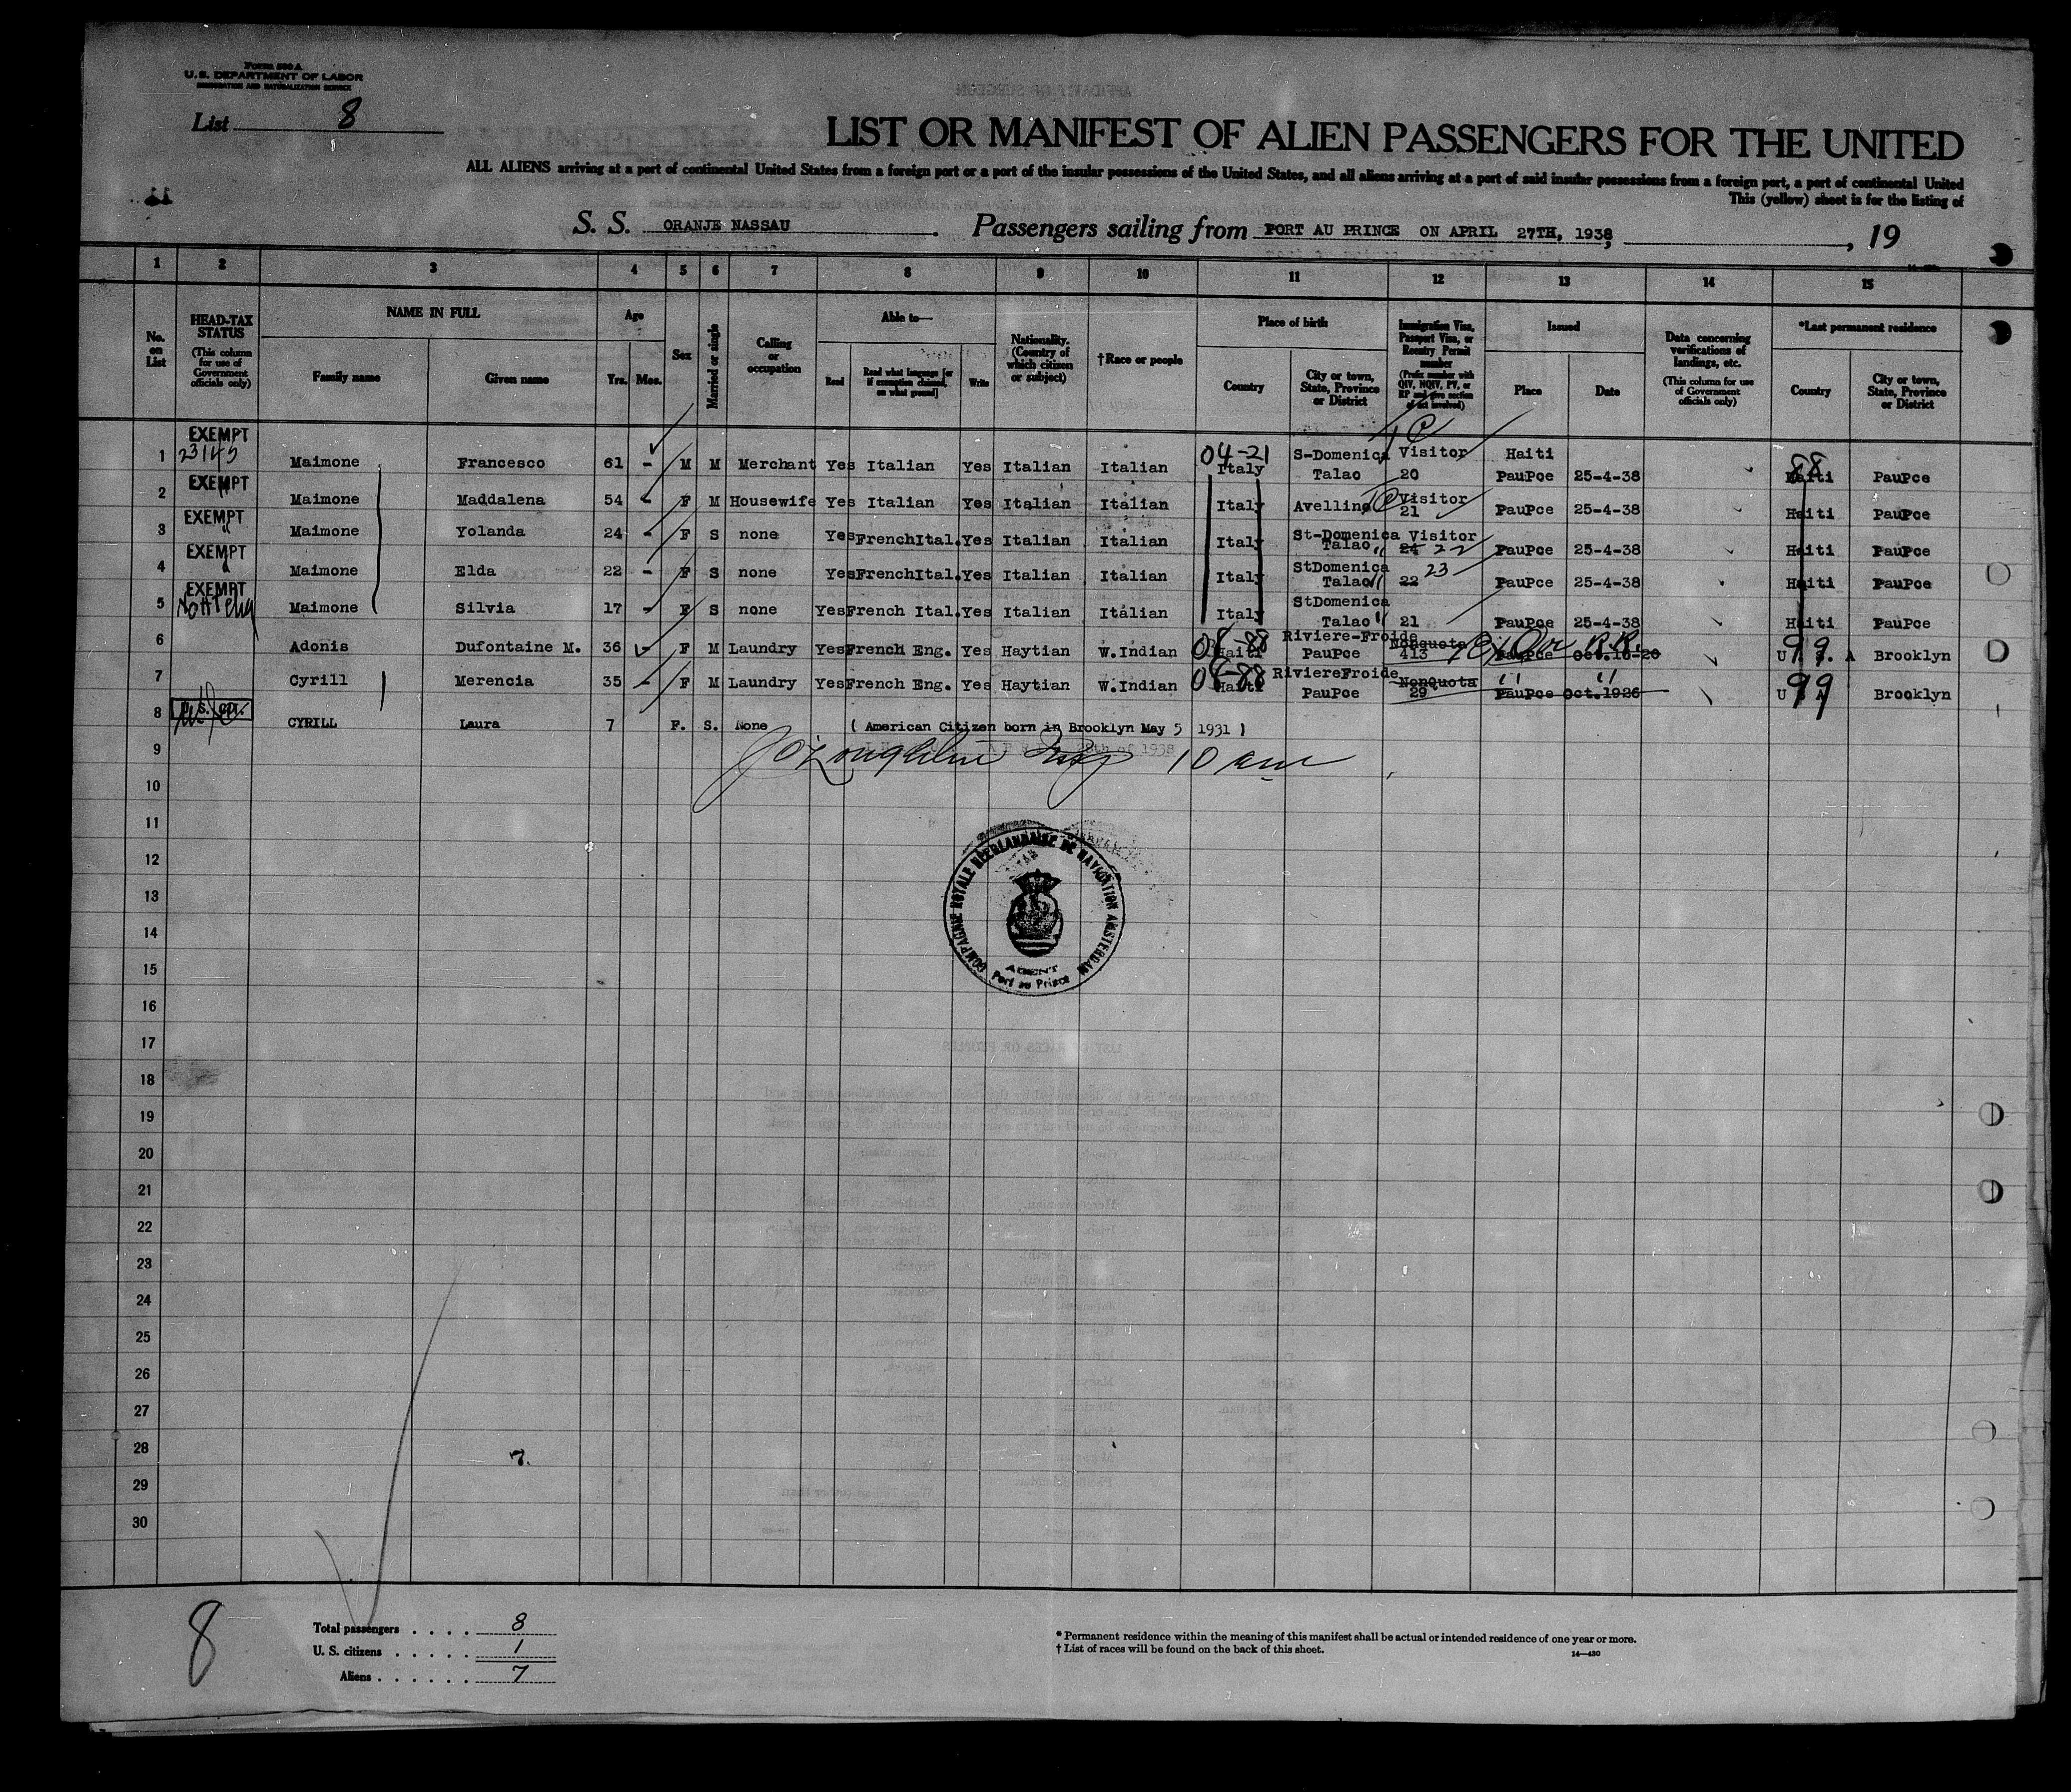 Form 500 A
U. S. DEPARTMENT OF LABOR
IMMIGRATION AND NATURALIZATION SERVICE
List 8
LIST OR MANIFEST OF ALIEN PASSENGERS FOR THE UNITED
ALL ALIENS arriving at a port of continental United States from a foreign port or a port of the insular possessions of the United States, and all aliens arriving at a port of said insular possessions from a foreign port, a port of continental United
This (yellow) sheet is for the listing of
S. S. ORANJE NASSAU . Passengers sailing from PORT AU PRINCE ON APRIL 27TH, 1938, , 19
1 2 3 4 5 6 7 8 9 10 11 12 13 14 15
No. on List
HEAD-TAX STATUS (This column for use of Government officials only)
NAME IN FULL
Family name
Given name
Age
Yrs. Mos.
Sex
Married or single
Calling or occupation
Able to—
Read
Read what language [or if exemption claimed, on what ground]
Write
Nationality. (Country of which citizen or subject)
†Race or people
Place of birth
Country
City or town, State, Province or District
Immigration Visa, Passport Visa, or Reentry Permit number (Prefix number with QIV, NQIV, PV, or RP and give section of act involved)
Issued
Place
Date
Data concerning verifications of landings, etc. (This column for use of Government officials only)
*Last permanent residence
Country
City or town, State, Province or District
1 EXEMPT 23145 Maimone Francesco 61 - M M Merchant Yes Italian Yes Italian Italian 04-21 Italy S-Domenica Talao Visitor 20 Haiti PauPce 25-4-38 88 Haiti PauPce
2 EXEMPT " Maimone Maddalena 54 - F M Housewife Yes Italian Yes Italian Italian Italy Avellino Visitor 21 PauPce 25-4-38 Haiti PauPce
3 EXEMPT " Maimone Yolanda 24 - F S none Yes FrenchItal. Yes Italian Italian Italy St-Domenica Talao Visitor 21 22 PauPce 25-4-38 Haiti PauPce
4 EXEMPT " Maimone Elda 22 - F S none Yes FrenchItal. Yes Italian Italian Italy StDomenica Talao 22 23 PauPce 25-4-38 Haiti PauPce
5 EXEMPT Maimone Silvia 17 - F S none Yes French Ital. Yes Italian Italian Italy StDomenica Talao 21 PauPce 25-4-38 Haiti PauPce
6 Adonis Dufontaine M. 36 - F M Laundry Yes French Eng. Yes Haytian W.Indian 04-88 Haiti Riviere-Froide PauPce Nonquota 413 R.R. PauPce Oct.18-20 99 U S. A Brooklyn
7 Cyrill Merencia 35 - F M Laundry Yes French Eng. Yes Haytian W.Indian 04-88 Haiti RiviereFroide PauPce NonQuota 29 PauPce Oct.1926 99 U A Brooklyn
8 U. S. CIT. CYRILL Laura 7 F. S. None ( American Citizen born in Brooklyn May 5 1931 )
9 10 am
10
11
12
13
14
15
16
17
18
19
20
21
22
23
24
25
26
27
28 7.
29
30
COMPAGNIE ROYALE NEERLANDAISE DE NAVIGATION AMSTERDAM
AGENT
Port au Prince
8
Total passengers . . . . 8
U. S. citizens . . . . . 1
Aliens . . . . . . 7
* Permanent residence within the meaning of this manifest shall be actual or intended residence of one year or more.
† List of races will be found on the back of this sheet.
14—430